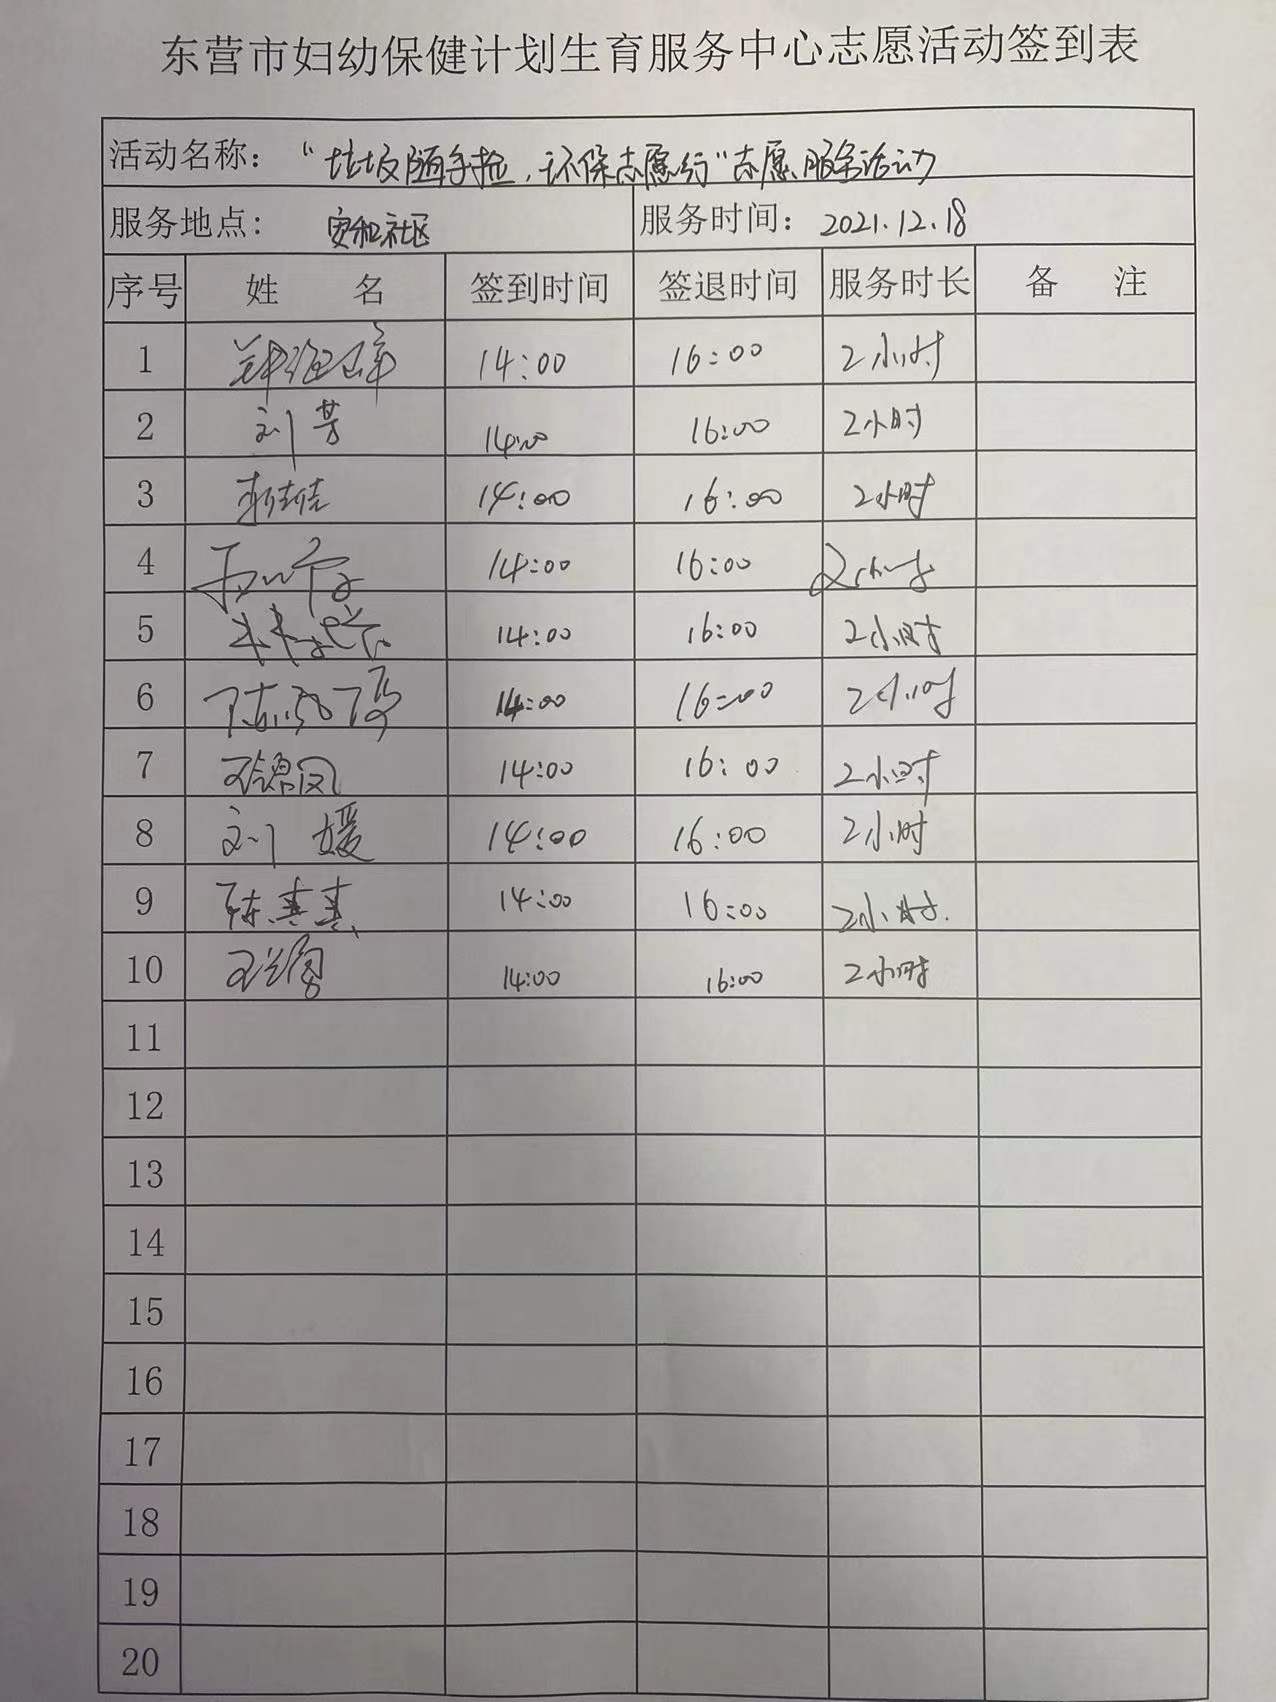 东营市妇幼保健计划生育服务中心志愿活动签到表
活动名称：“垃圾随手捡，环保志愿行”志愿服务活动
服务地点：安和社区 服务时间：2021.12.18
序号 姓名 签到时间 签退时间 服务时长 备注
1 14:00 16:00 2小时
2 刘芳 14:00 16:00 2小时
3 14:00 16:00 2小时
4 14:00 16:00 2小时
5 14:00 16:00 2小时
6 14:00 16:00 2小时
7 王锦凤 14:00 16:00 2小时
8 刘媛 14:00 16:00 2小时
9 陈真真 14:00 16:00 2小时
10 14:00 16:00 2小时
11
12
13
14
15
16
17
18
19
20